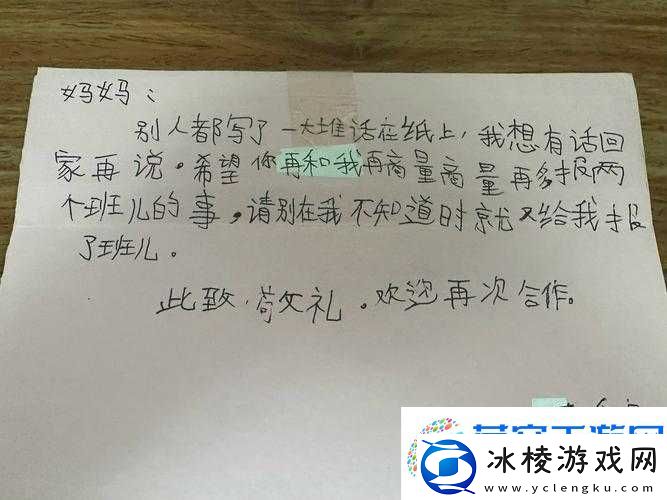 妈妈：
别人都写了一大堆话在纸上，我想有话回
家再说。希望你再和我再商量商量再多报两
个班儿的事，请别在我不知道时就又给我报
了班儿。
此致，敬礼。欢迎再次合作。
冰棱游戏网
www.yclengku.com